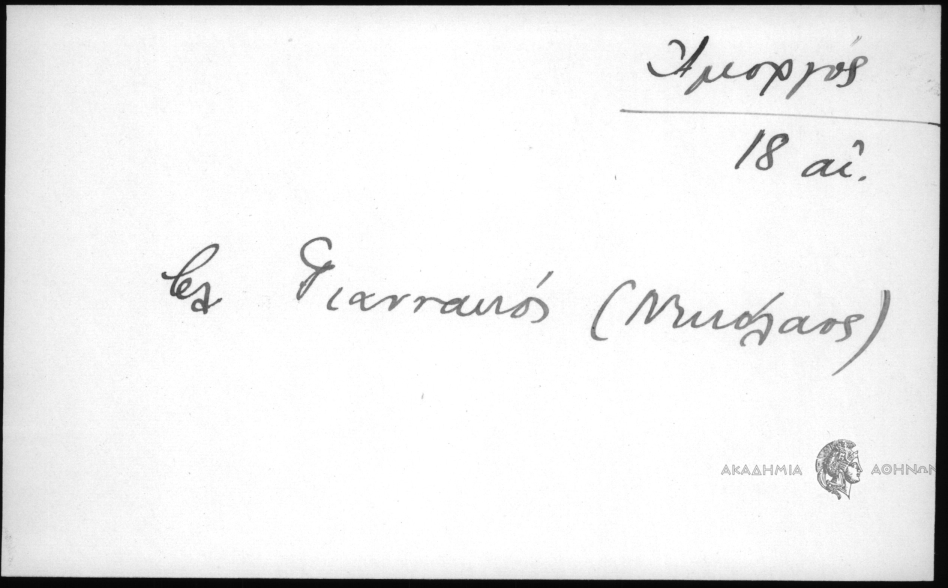 Ἀμοργός
18 αἰ.
βλ Γιαννακός (Νικόλαος)
ΑΚΑΔΗΜΙΑ ΑΘΗΝΩΝ